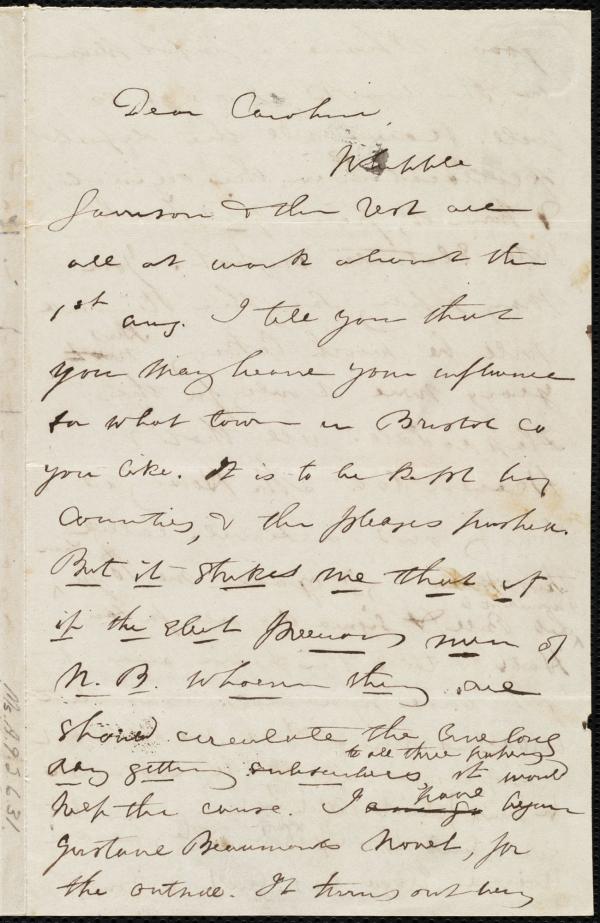 Dear Caroline,
Whipple
Garrison & the rest are
all at work about the
1st aug. I tell you that
you may heave your influence
for what town in Bristol co
you like. It is to be kept by
Counties, & the pledges pushed.
But it strikes me that if
if the elect precious men of
N. B. whoever they are
should circulate the live long
to all three papers
day getting subscribers, it would
help the cause. I have begun
Gustave Beaumonts Novel, for
the outside. It turns out very
Ms.A.9.2.6.31